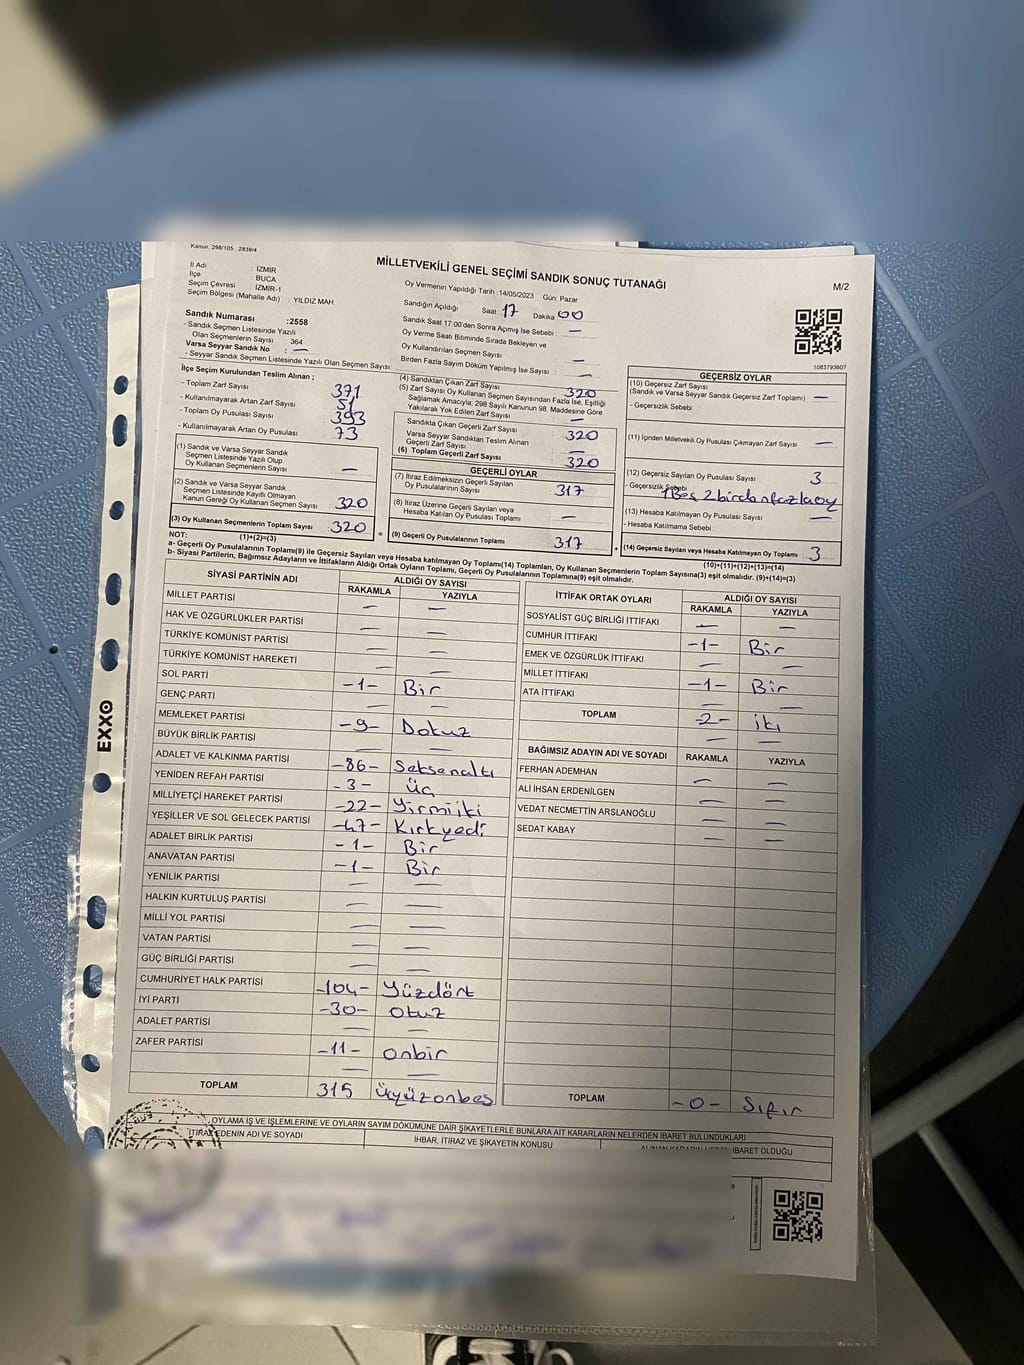 Kanun: 298/105 , 2839/4
MİLLETVEKİLİ GENEL SEÇİMİ SANDIK SONUÇ TUTANAĞI
M/2
İl Adı : İZMİR
İlçe : BUCA
Seçim Çevresi : İZMİR-1
Seçim Bölgesi (Mahalle Adı) : YILDIZ MAH
Oy Vermenin Yapıldığı Tarih :14/05/2023 Gün: Pazar
Sandığın Açıldığı Saat 17 Dakika 00
Sandık Saat 17:00'den Sonra Açılmış İse Sebebi : —
Oy Verme Saati Bitiminde Sırada Bekleyen ve
Oy Kullandırılan Seçmen Sayısı —
Birden Fazla Sayım Döküm Yapılmış İse Sayısı : —
Sandık Numarası :2558
- Sandık Seçmen Listesinde Yazılı
Olan Seçmenlerin Sayısı : 364
Varsa Seyyar Sandık No : —
- Seyyar Sandık Seçmen Listesinde Yazılı Olan Seçmen Sayısı:
1083793607
İlçe Seçim Kurulundan Teslim Alınan ;
- Toplam Zarf Sayısı 371
- Kullanılmayarak Artan Zarf Sayısı 51
- Toplam Oy Pusulası Sayısı 393
- Kullanılmayarak Artan Oy Pusulası 73
(1) Sandık ve Varsa Seyyar Sandık
Seçmen Listesinde Yazılı Olup
Oy Kullanan Seçmenlerin Sayısı —
(2) Sandık ve Varsa Seyyar Sandık
Seçmen Listesinde Kayıtlı Olmayan
Kanun Gereği Oy Kullanan Seçmen Sayısı 320
(3) Oy Kullanan Seçmenlerin Toplam Sayısı 320
(1)+(2)=(3)
(4) Sandıktan Çıkan Zarf Sayısı 320
(5) Zarf Sayısı Oy Kullanan Seçmen Sayısından Fazla İse, Eşitliği
Sağlamak Amacıyla; 298 Sayılı Kanunun 98. Maddesine Göre
Yakılarak Yok Edilen Zarf Sayısı —
Sandıkta Çıkan Geçerli Zarf Sayısı 320
Varsa Seyyar Sandıktan Teslim Alınan
Geçerli Zarf Sayısı —
(6) Toplam Geçerli Zarf Sayısı 320
GEÇERLİ OYLAR
(7) İtiraz Edilmeksizin Geçerli Sayılan
Oy Pusulalarının Sayısı 317
(8) İtiraz Üzerine Geçerli Sayılan veya
Hesaba Katılan Oy Pusulası Toplamı —
= (9) Geçerli Oy Pusulalarının Toplamı 317
GEÇERSİZ OYLAR
(10) Geçersiz Zarf Sayısı
(Sandık ve Varsa Seyyar Sandık Geçersiz Zarf Toplamı) —
- Geçersizlik Sebebi
(11) İçinden Milletvekili Oy Pusulası Çıkmayan Zarf Sayısı —
(12) Geçersiz Sayılan Oy Pusulası Sayısı 3
- Geçersizlik Sebebi 1 Boş 2 birden fazla oy
(13) Hesaba Katılmayan Oy Pusulası Sayısı —
- Hesaba Katılmama Sebebi :
+ (14) Geçersiz Sayılan veya Hesaba Katılmayan Oy Toplamı 3
(10)+(11)+(12)+(13)=(14)
NOT:
a- Geçerli Oy Pusulalarının Toplamı(9) ile Geçersiz Sayılan veya Hesaba katılmayan Oy Toplamı(14) Toplamları, Oy Kullanan Seçmenlerin Toplam Sayısına(3) eşit olmalıdır. (9)+(14)=(3)
b- Siyasi Partilerin, Bağımsız Adayların ve İttifakların Aldığı Ortak Oyların Toplamı, Geçerli Oy Pusulalarının Toplamına(9) eşit olmalıdır.
SİYASİ PARTİNİN ADI ALDIĞI OY SAYISI
RAKAMLA YAZIYLA
MİLLET PARTİSI — —
HAK VE ÖZGÜRLÜKLER PARTİSİ
TÜRKİYE KOMÜNİST PARTİSİ — —
TÜRKİYE KOMÜNİST HAREKETİ — —
SOL PARTİ — —
GENÇ PARTİ -1- Bir
MEMLEKET PARTİSİ -9- Dokuz
BÜYÜK BİRLİK PARTİSİ — —
ADALET VE KALKINMA PARTİSİ -86- Seksenaltı
YENİDEN REFAH PARTİSİ -3- üç
MİLLİYETÇİ HAREKET PARTİSİ -22- Yirmiiki
YEŞİLLER VE SOL GELECEK PARTİSİ -47- Kırkyedi
ADALET BİRLİK PARTİSİ -1- Bir
ANAVATAN PARTİSİ -1- Bir
YENİLİK PARTİSİ — —
HALKIN KURTULUŞ PARTİSİ — —
MİLLİ YOL PARTİSİ — —
VATAN PARTİSİ — —
GÜÇ BİRLİĞİ PARTİSİ — —
CUMHURİYET HALK PARTİSİ -104- Yüzdört
İYİ PARTİ -30- Otuz
ADALET PARTİSİ — —
ZAFER PARTİSİ -11- onbir
— —
TOPLAM 315 üçyüzonbeş
İTTİFAK ORTAK OYLARI ALDIĞI OY SAYISI
RAKAMLA YAZIYLA
SOSYALİST GÜÇ BİRLİĞİ İTTİFAKI — —
CUMHUR İTTİFAKI -1- Bir
EMEK VE ÖZGÜRLÜK İTTİFAKI — —
MİLLET İTTİFAKI -1- Bir
ATA İTTİFAKI — —
TOPLAM 2- iki
— —
BAĞIMSIZ ADAYIN ADI VE SOYADI RAKAMLA YAZIYLA
FERHAN ADEMHAN — —
ALİ İHSAN ERDENİLGEN — —
VEDAT NECMETTİN ARSLANOĞLU — —
SEDAT KABAY — —
TOPLAM -0- Sıfır
OYLAMA İŞ VE İŞLEMLERİNE VE OYLARIN SAYIM DÖKÜMÜNE DAİR ŞİKAYETLERLE BUNLARA AİT KARARLARIN NELERDEN İBARET BULUNDUKLARI
İTİRAZ EDENİN ADI VE SOYADI
İHBAR, İTİRAZ VE ŞİKAYETİN KONUSU
İBARET OLDUĞU
EXXO
EXXO